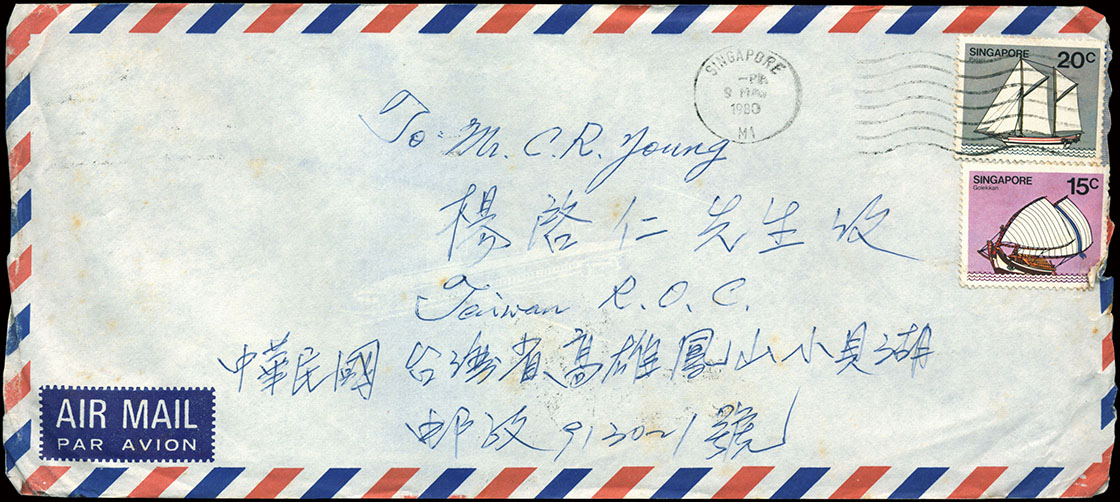 SINGAPORE
9
1980
M1
SINGAPORE
20C
SINGAPORE
15C
Golekkan
To: Mr. C.R. Young
楊啓仁先生收
Taiwan R.O.C.
中華民國台灣省高雄鳳山小貝湖
邮政913021號
AIR MAIL
PAR AVION